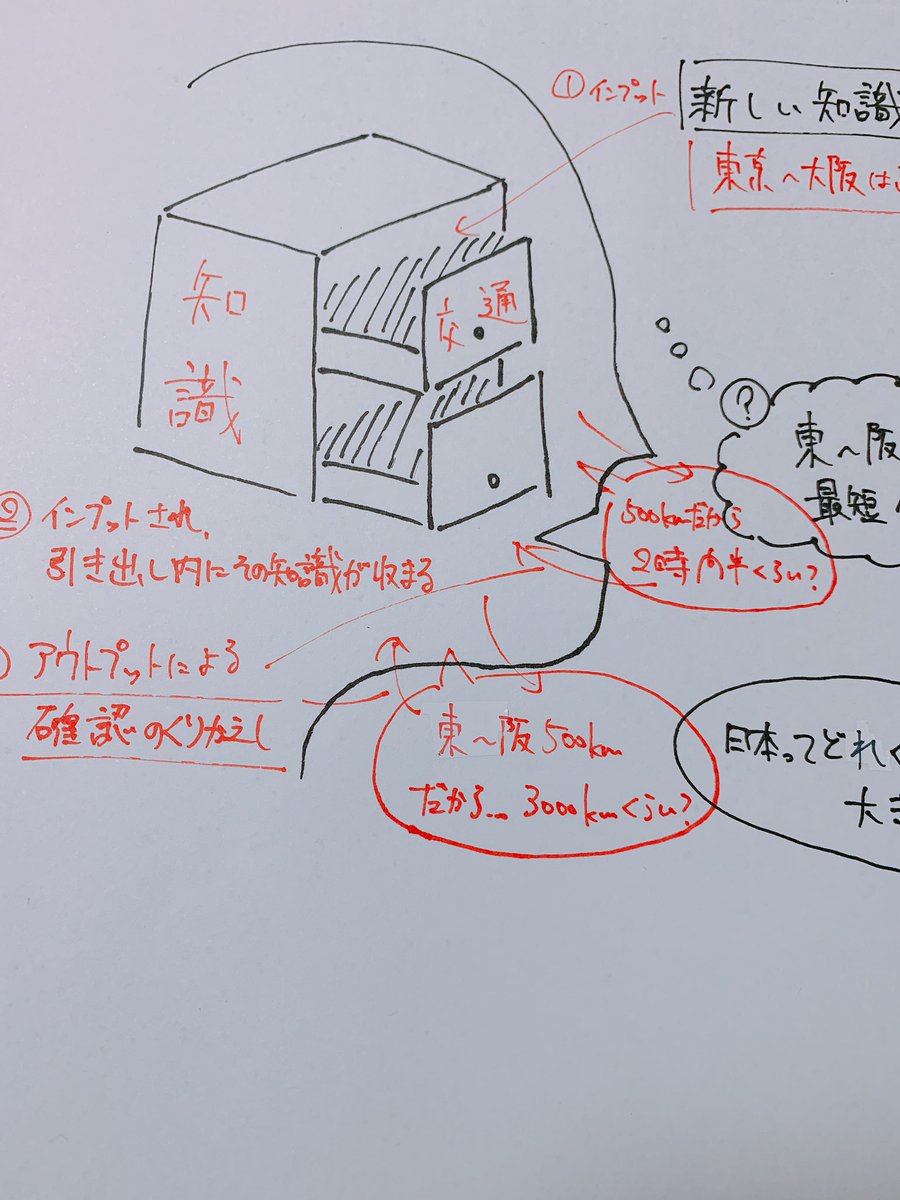 ①インプット
新しい知識
東京〜大阪は
知
識
交通
?
東〜阪
最短
②インプットされ、
引き出し内にその知識が収まる
500kmだから
2時間半くらい?
アウトプットによる
確認のくりかえし
東〜阪500km
だから…3000kmくらい?
日本ってどれく
大き